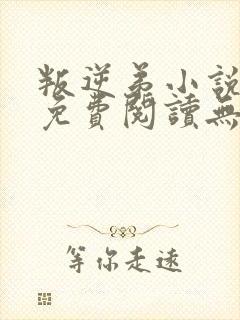 叛逆弟小說
免費閱讀無
等你走遠